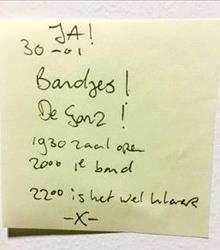 JA!
30-01
Bandjes!
De Gonz!
1930 zaal open
2000 1e band
2200 is het wel klaar
-X-